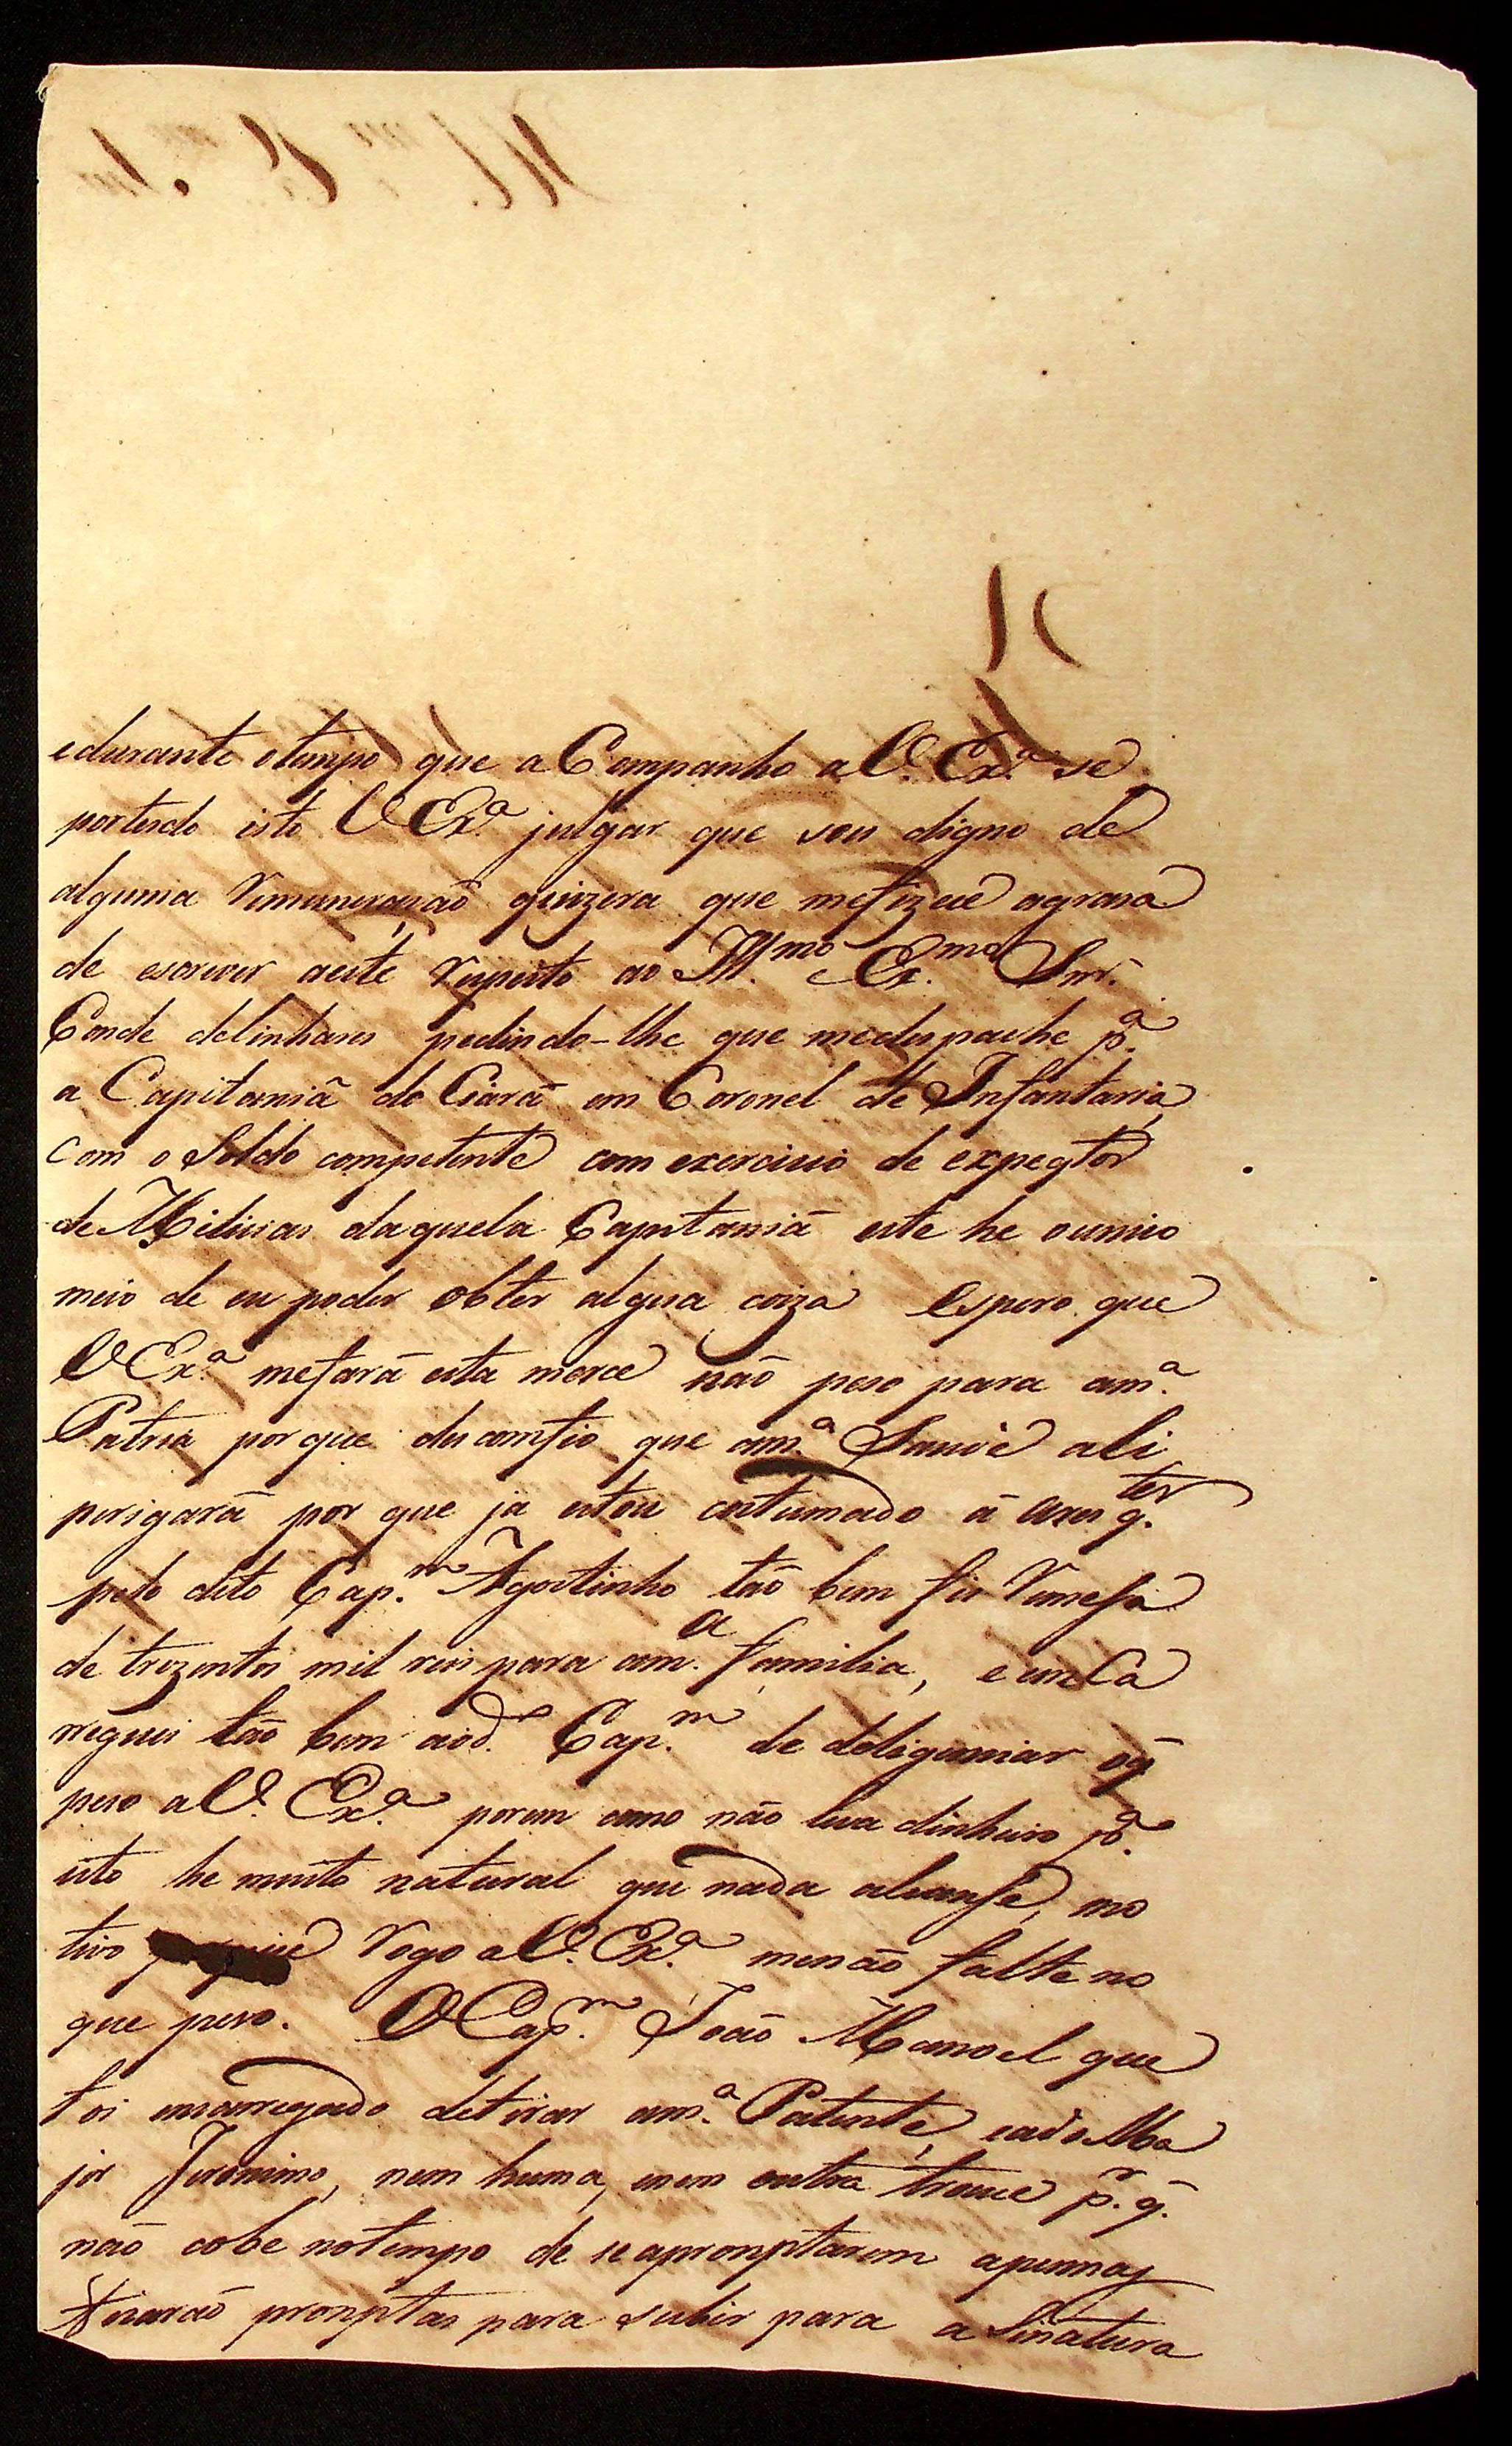 edurante otempo que aCompanho aV. Ex.ª se
portudo isto V Ex.ª julgar que sou digno de
alguma Remuneração quizera que mefizece agrasa
de escrever aeste Respeito ao Ill.mo e Ex.mo Snr.
Conde delinhares pedindo-lhe que medespache p.ª
a Capitaniã do Ciarã em Coronel de Infantaria,
com o Soldo competente com exercicio de expegtor
de Milicias daquela Capitaniã este he ounico
meio de eu poder obter algua coiza espero que
V Ex.ª mefarã esta merce não peso para am.ª
Patria porque desconfio que am.ª Saude ali
perigarã por que ja estou custumado ã ares q.tes
pelo dito Cap.m Agostinho tão bem fis Remesa
de trezentos mil reis para am.ª familia, e enCa
rreguei tão bem aod.º Cap.m de deligenciar oq̃
peso aV. Ex.ª porem como não leva dinheiro p.ª
isto he muito natural que nada alcanse, mo
tivo porque Rogo aV. Ex.ª menão falte no
que peso. O Cap.m João Manoel que
foi encarregado detirar am.ª Patente, eado Ma
jor Jeronimo, nem huma, enem outra trouce p.r q̃.
não cobe notempo de seapromptarem apennas
ficarão promptas para subir para aSinatura